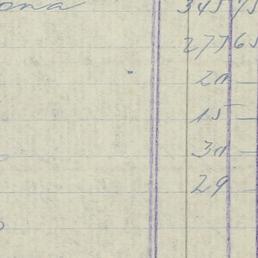 ona 345 75
277 65
20 —
15 —
30 —
29 —